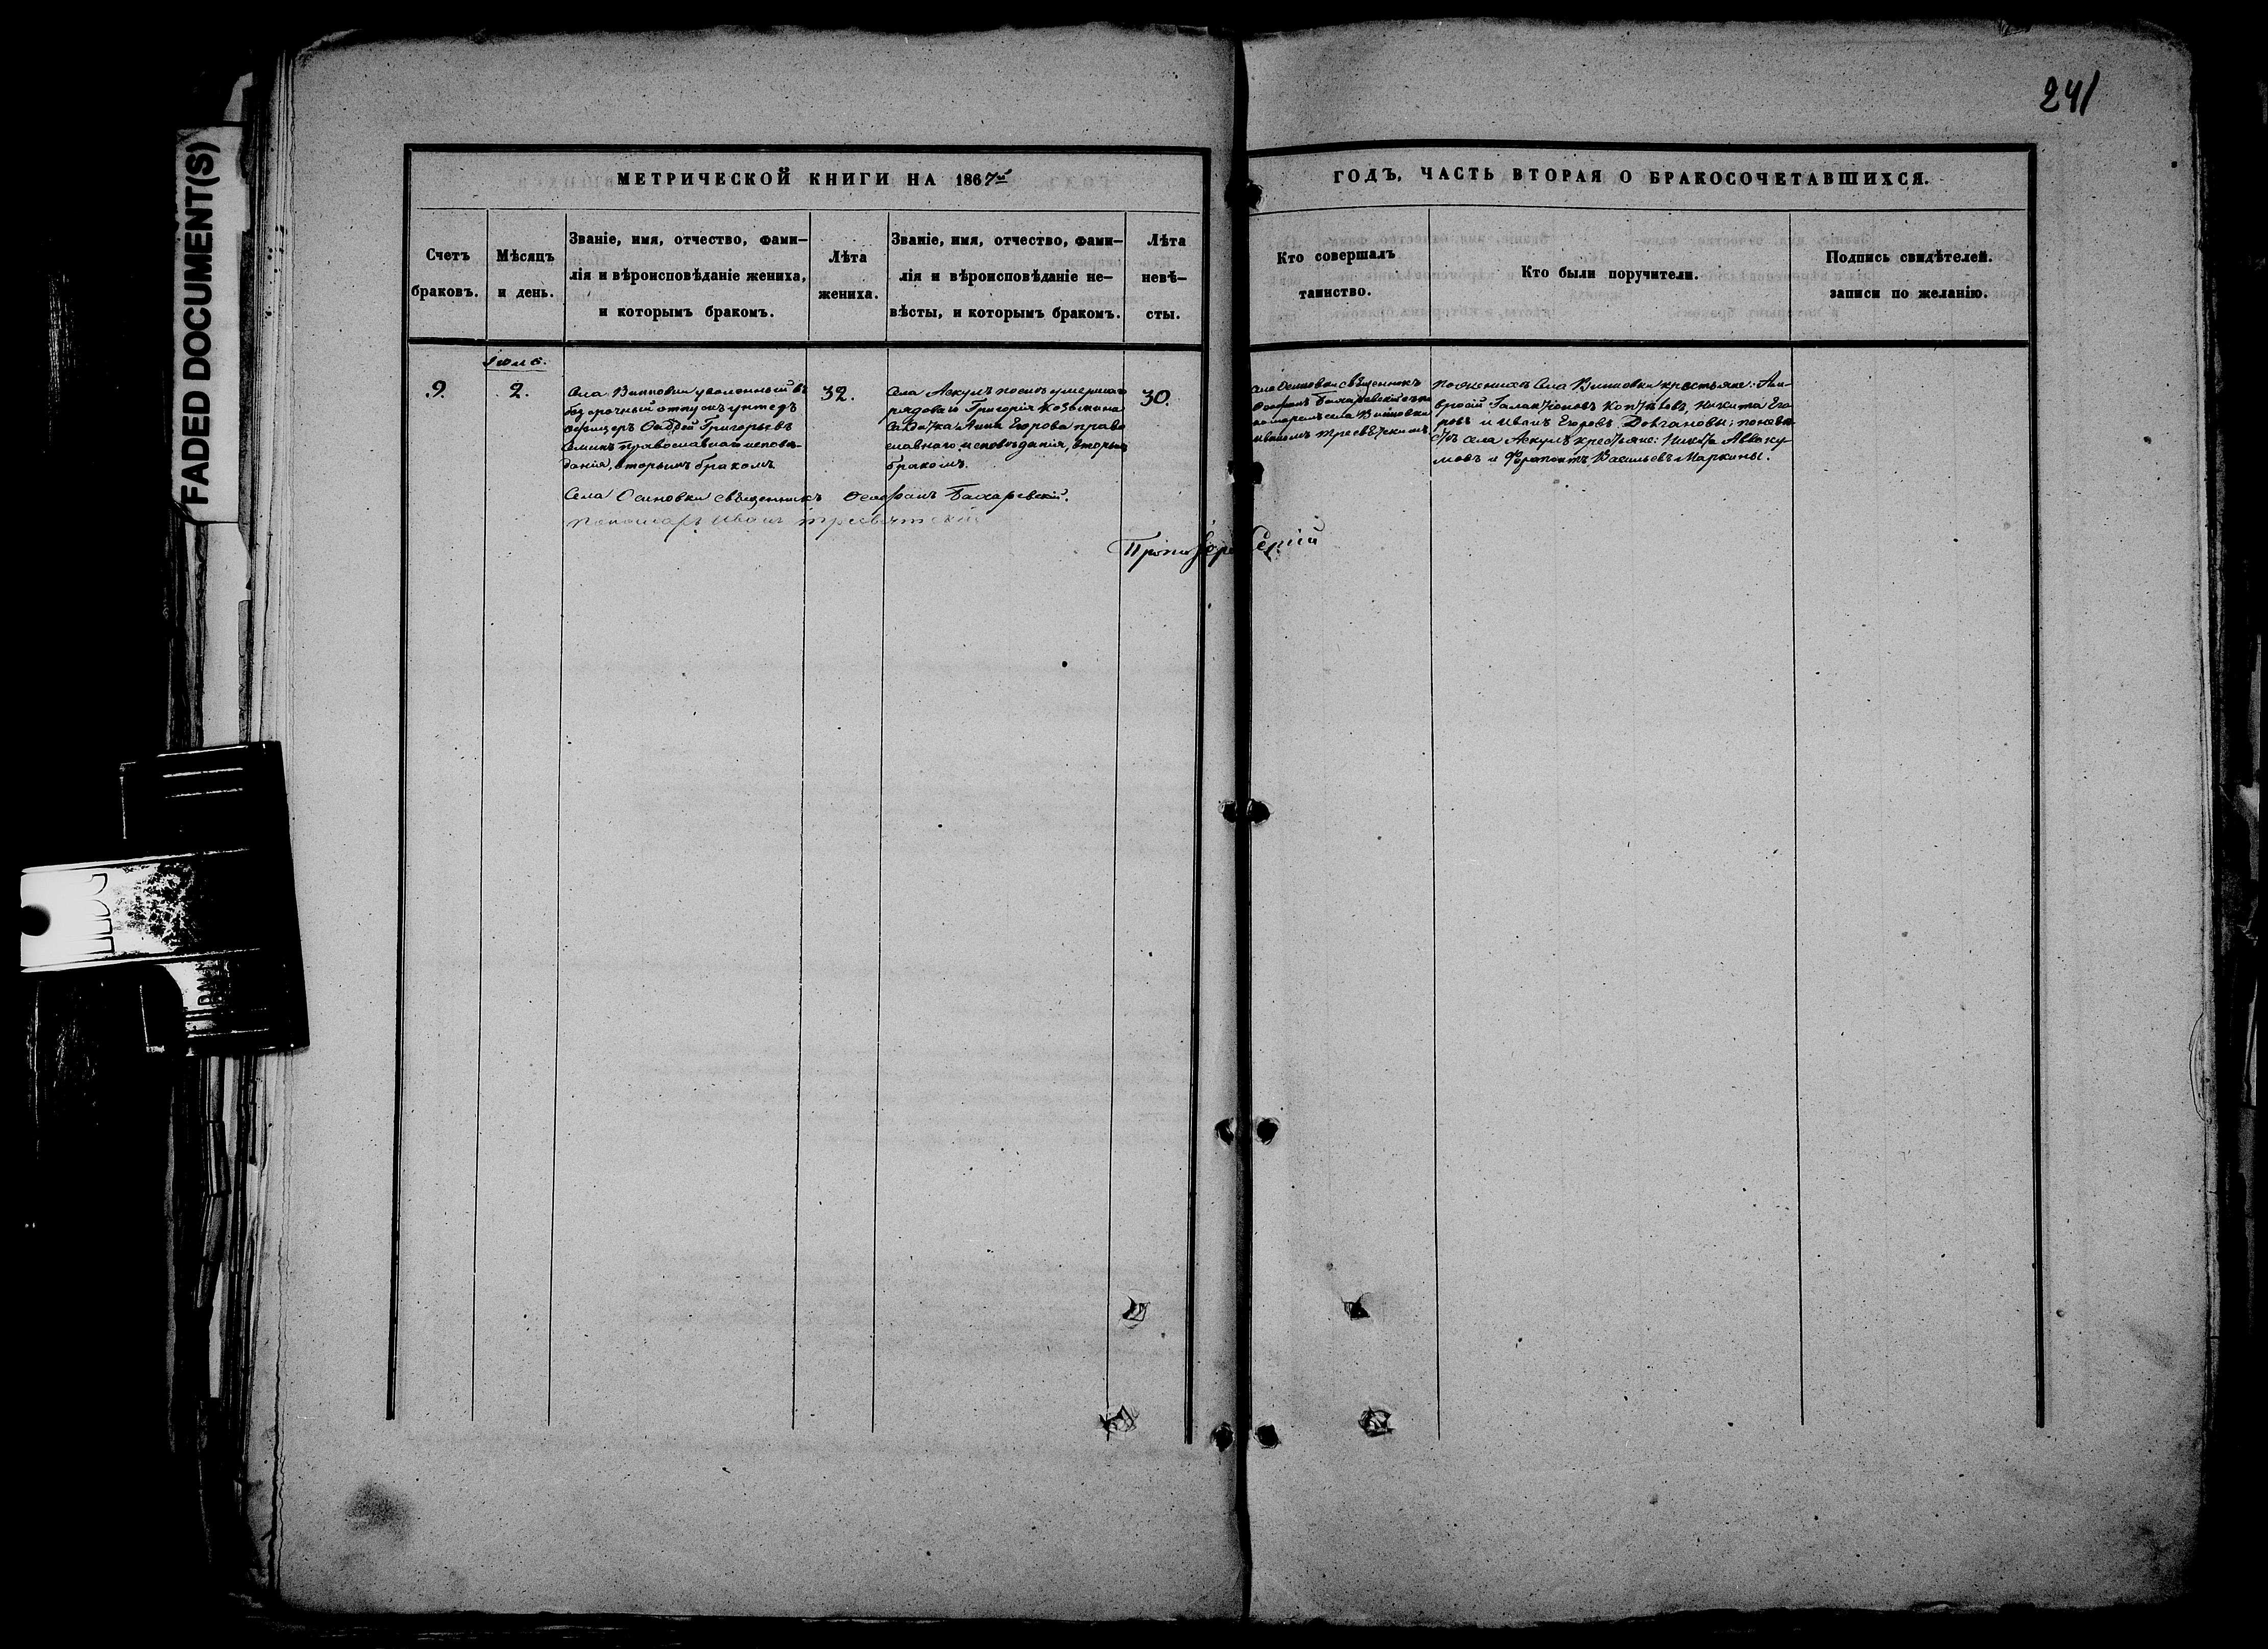 241
FADED DOCUMENT(S)
МЕТРИЧЕСКОЙ КНИГИ НА 1867й
ГОДЪ, ЧАСТЬ ВТОРАЯ О БРАКОСОЧЕТАВШИХСЯ.
Счетъ
браковъ.
Мѣсяцъ
и день.
Званіе, имя, отчество, фами-
лія и вѣроисповѣданіе жениха,
и которымъ бракомъ.
Лѣта
жениха.
Званіе, имя, отчество, фами-
лія и вѣроисповѣданіе не-
вѣсты, и которымъ бракомъ.
Лѣта
невѣ-
сты.
Кто совершалъ
таинство.
Кто были поручители.
Подпись свидѣтелей
записи по желанію.
9.
2.
Села Винновки уволенный въ
безсрочный отпускъ унтеръ
офицеръ Григорьевъ
православнаго исповѣ-
данія, вторымъ бракомъ
32.
Села Аскулъ послѣ умершаго
рядоваго Григорія Козьмина
солдатка Анна Егорова право
славнаго исповѣданія, вторымъ
бракомъ.
30.
Осиновки священникъ
Бахаревскій съ по
номаремъ села Винновки
Иваномъ Тресвятскимъ
По женихѣ села Винновки крестьяне: Ам-
вросій Галактіоновъ Никита Его
ровъ и Иванъ Егоровъ Долгановы; по невѣ
стѣ села Аскулъ крестьяне: Аввоку
мовъ и Ферапонтъ Васильевъ Маркины.
Села Осиновки священникъ Бахаревскій.
Пономарь Иванъ Тресвятскій